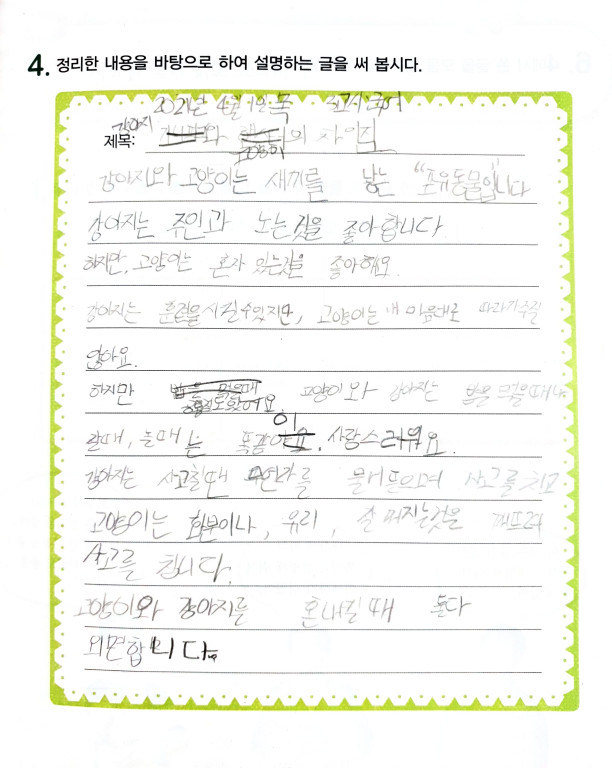 4. 정리한 내용을 바탕으로 하여 설명하는 글을 써 봅시다.
2021년 4월 1일 목
강아지
제목: 와 의 차이점
고양이
강아지와 고양이는 새끼를 낳는 "포유동물"입니다
강아지는 주인과 노는것을 좋아합니다.
하지만, 고양이는 혼자 있는것을 좋아해요.
강아지는 훈련을 시킬수있지만, 고양이는 내 마음대로 따라가주질
않아요.
하지만 밥을 먹을때 고양이와 강아지는 밥을 먹을때나
공통점도 있어요.
잘때, 놀때는 똑같이 사랑스러워요.
강아지는 사고칠땐 를 물어뜯으며 사고를 치고
고양이는 화분이나, 유리, 잘 깨지는것을 깨뜨려
사고를 칩니다.
고양이와 강아지를 혼내킬 때 둘다
외면합니다.